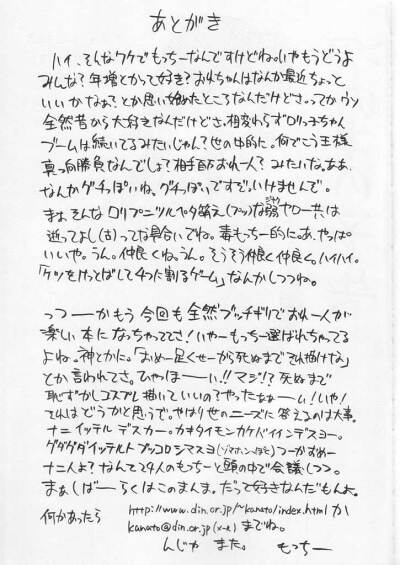 あとがき
ハイ、そんなワケでもっちーなんですけどね。いやもうどうよ
みんな?年増とかって好き?おれちゃんはなんか最近ちょっと
いいかなぁ?とか思い始めたところなんだけどさ。ってかウソ
全然昔から大好きなんだけどさ。相変わらずロリっ子ちゃん
ブームは続いてるみたいじゃん?世の中的に。何でこう王様
真っ向勝負なんでしょ?相手百万おれ一人?みたいな。ああ、
なんかグチっぽいね。グチっぽいですぞ。いけませんで。
まぁ、そんなロリプニツルペタ萌え(プッ)な弱ヤロー共は
逝ってよし(古)ってな具合いでね。毒もっちー的に。あ、やっぱ
いいや。うん。仲良くね。うん。そうそう仲良く仲良く。ハイハイ。
「ケツをけっとばして4つに割るゲーム」なんかしつつね。
っつーーかもう今回も全然ブッチギリでおれ一人が
楽しい本になっちゃっててさ!いやーもっちー選ばれちゃってる
よね。神とかに。「おめー足くせーから死ぬまでそれ描けな」
とか言われてさ。ひゃほーーい!!マジ!?死ぬまで
恥ずかしコスプレ描いていいの?やったぁぁーム!いや!
それはどうかと思うで。やはり世のニーズに答えるのは大事。
ナニイッテルデスカー。カキタイモンカケバイインデスヨー。
グダグダイッテルトブッコロシマスヨ つーかおめー
ナニ人よ?なんて24人のもっちーと頭の中で会議しつつ。
まぁしばーらくはこのまんま。だって好きなんだもんよ。
何かあったら http://www.din.or.jp/~kanato/index.html か
kanato@din.or.jp までね。
んじゃ また。 もっちー